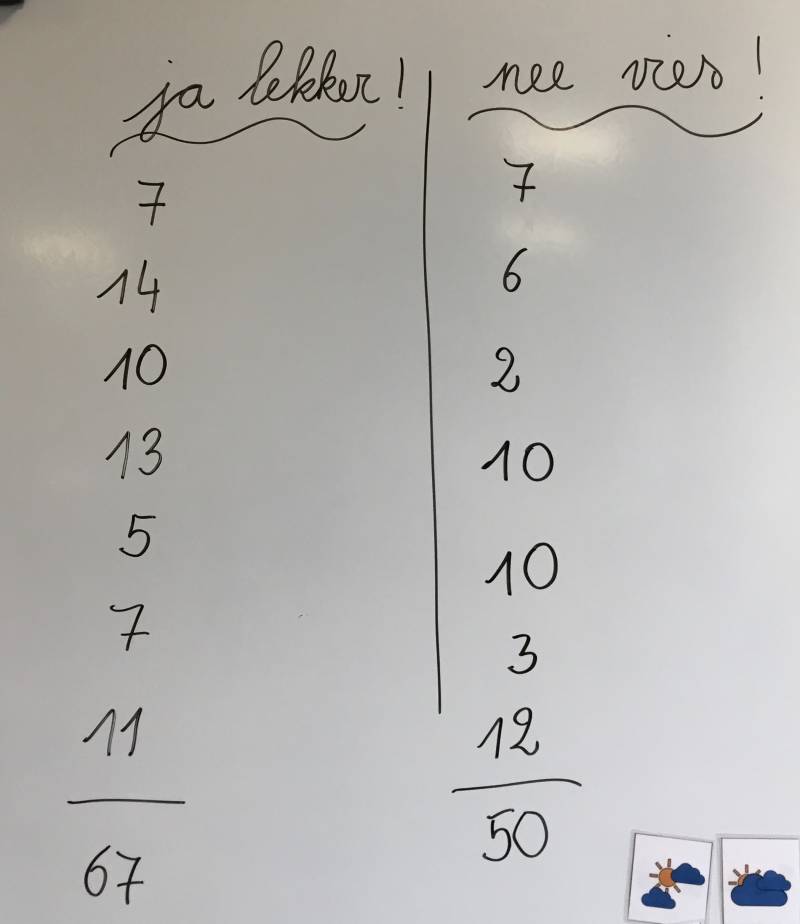 ja lekker!
7
14
10
13
5
7
11
67
nee vies!
7
6
2
10
10
3
12
50